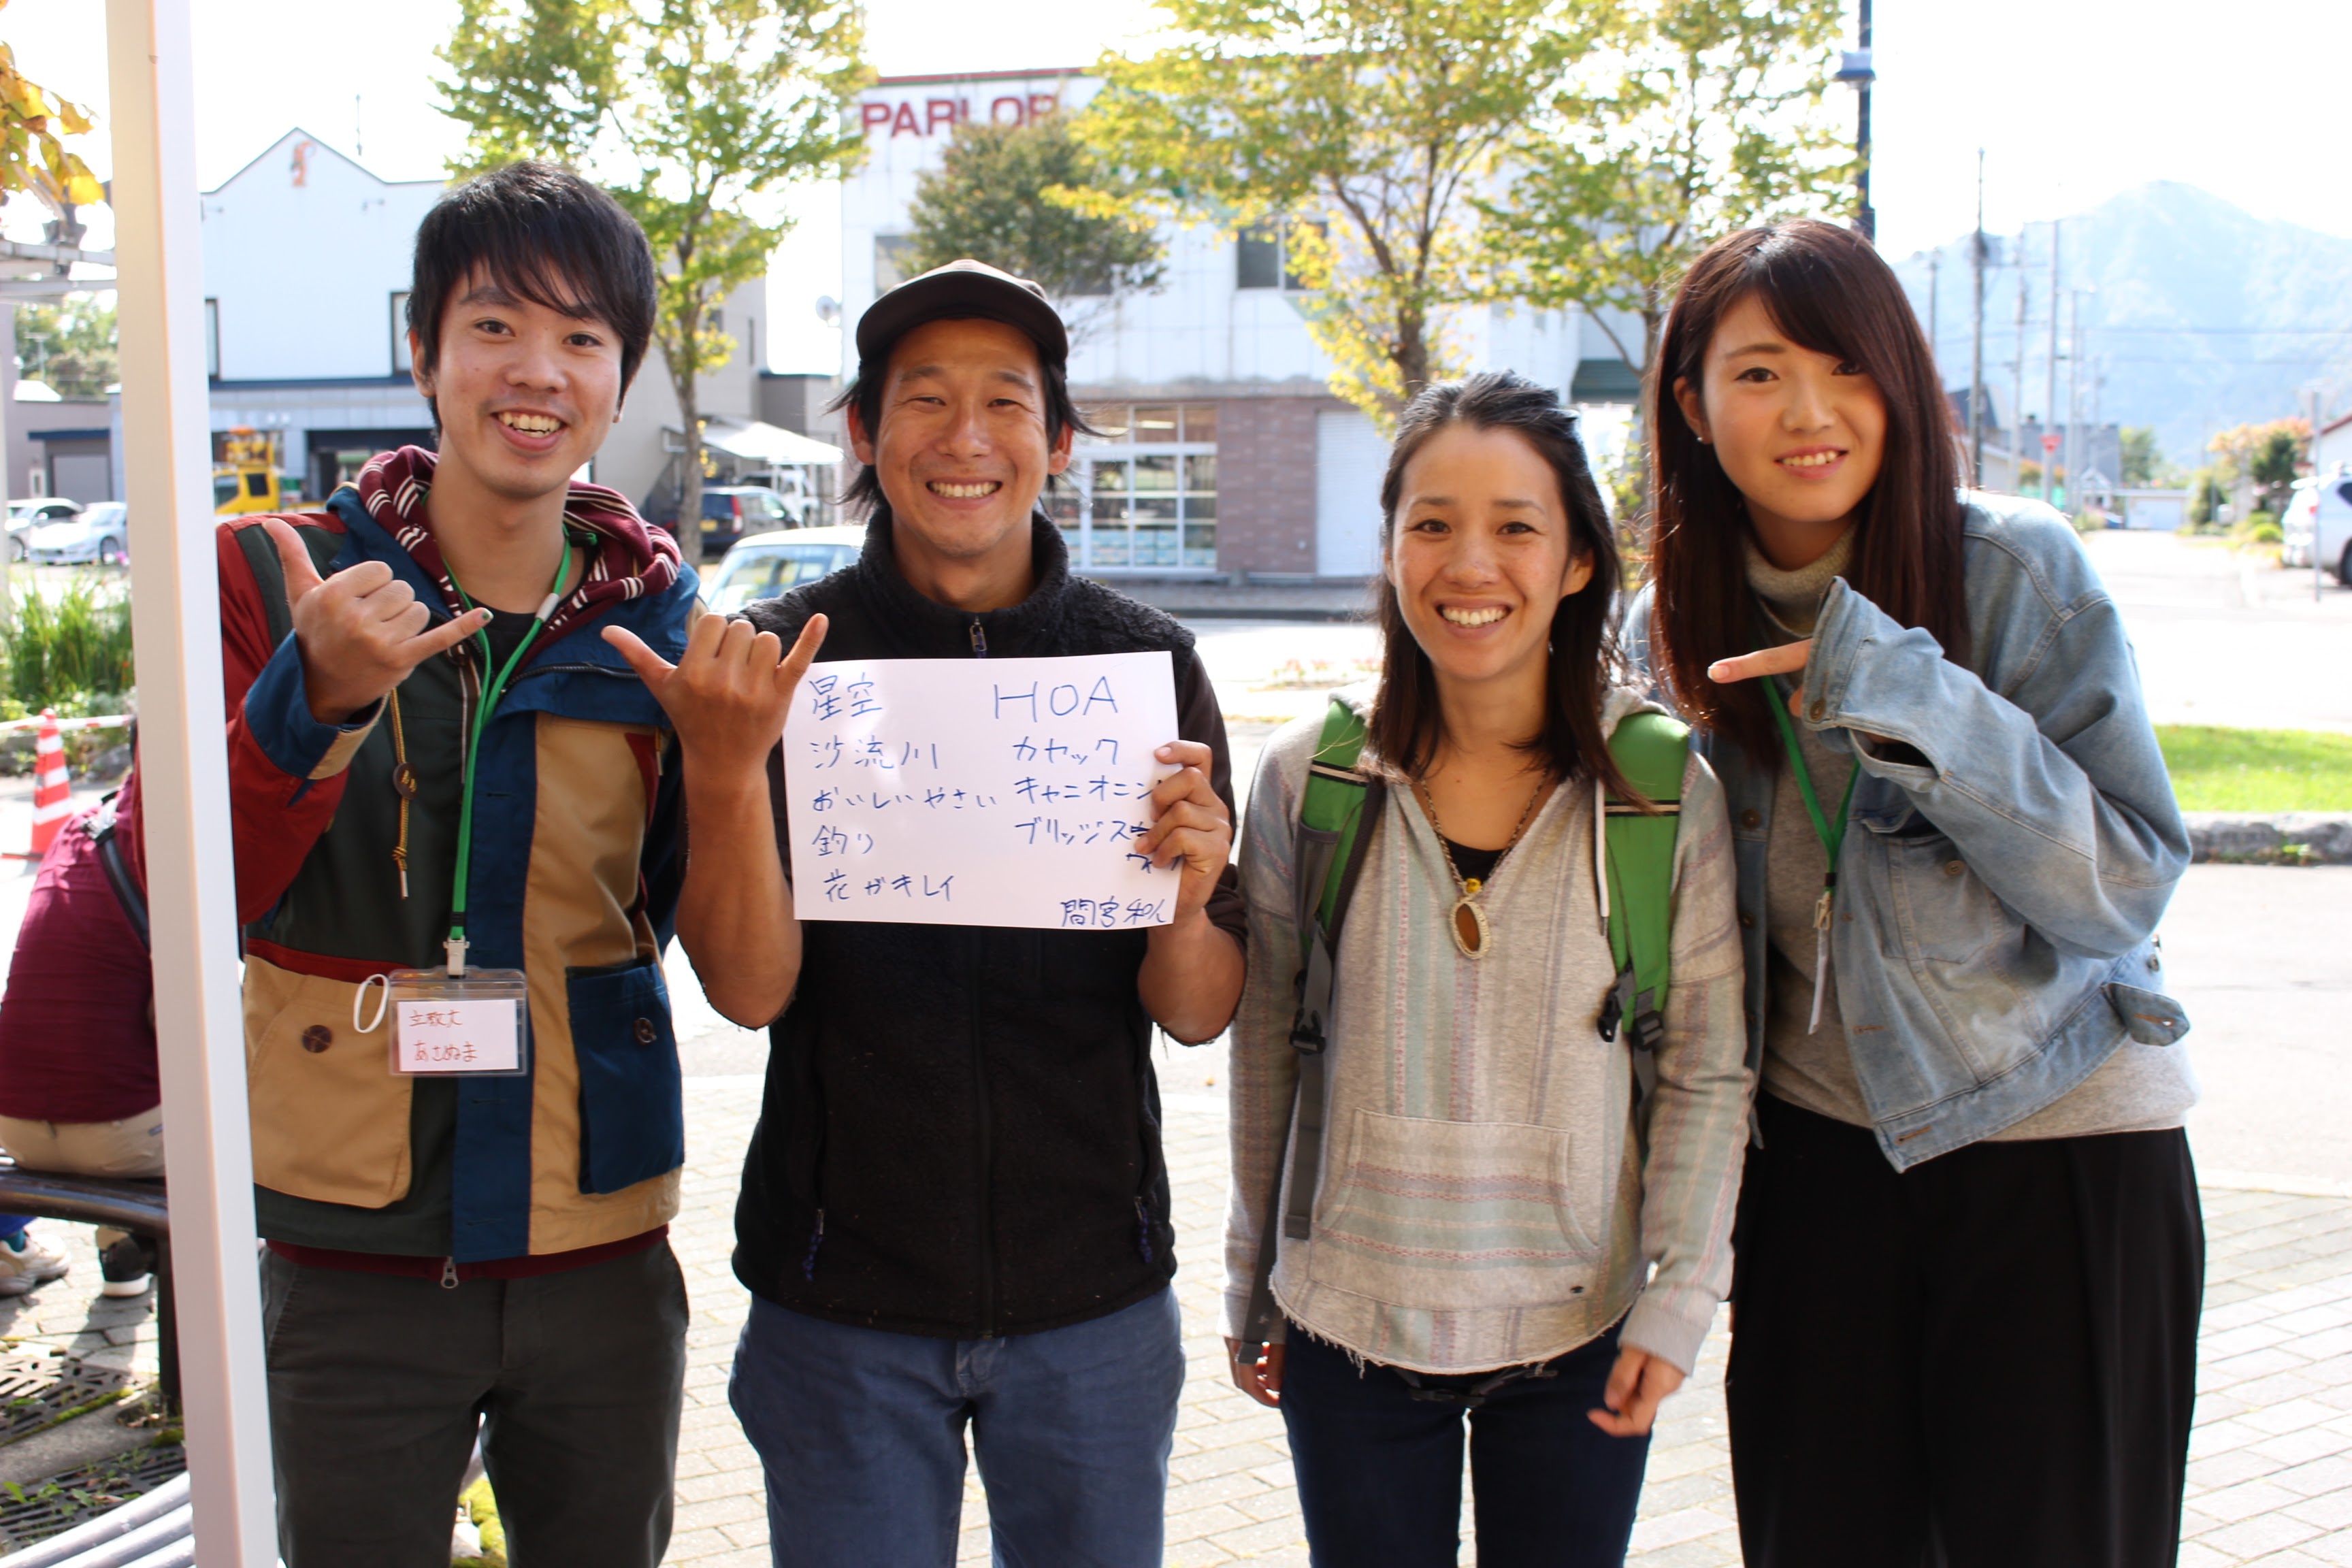 PARLOR
星空
沙流川
おいしいやさい
釣り
花がキレイ
HOA
カヤック
キャニオニン
ブリッジスウ
ウィ
間宮和人
立教大
あさぬま